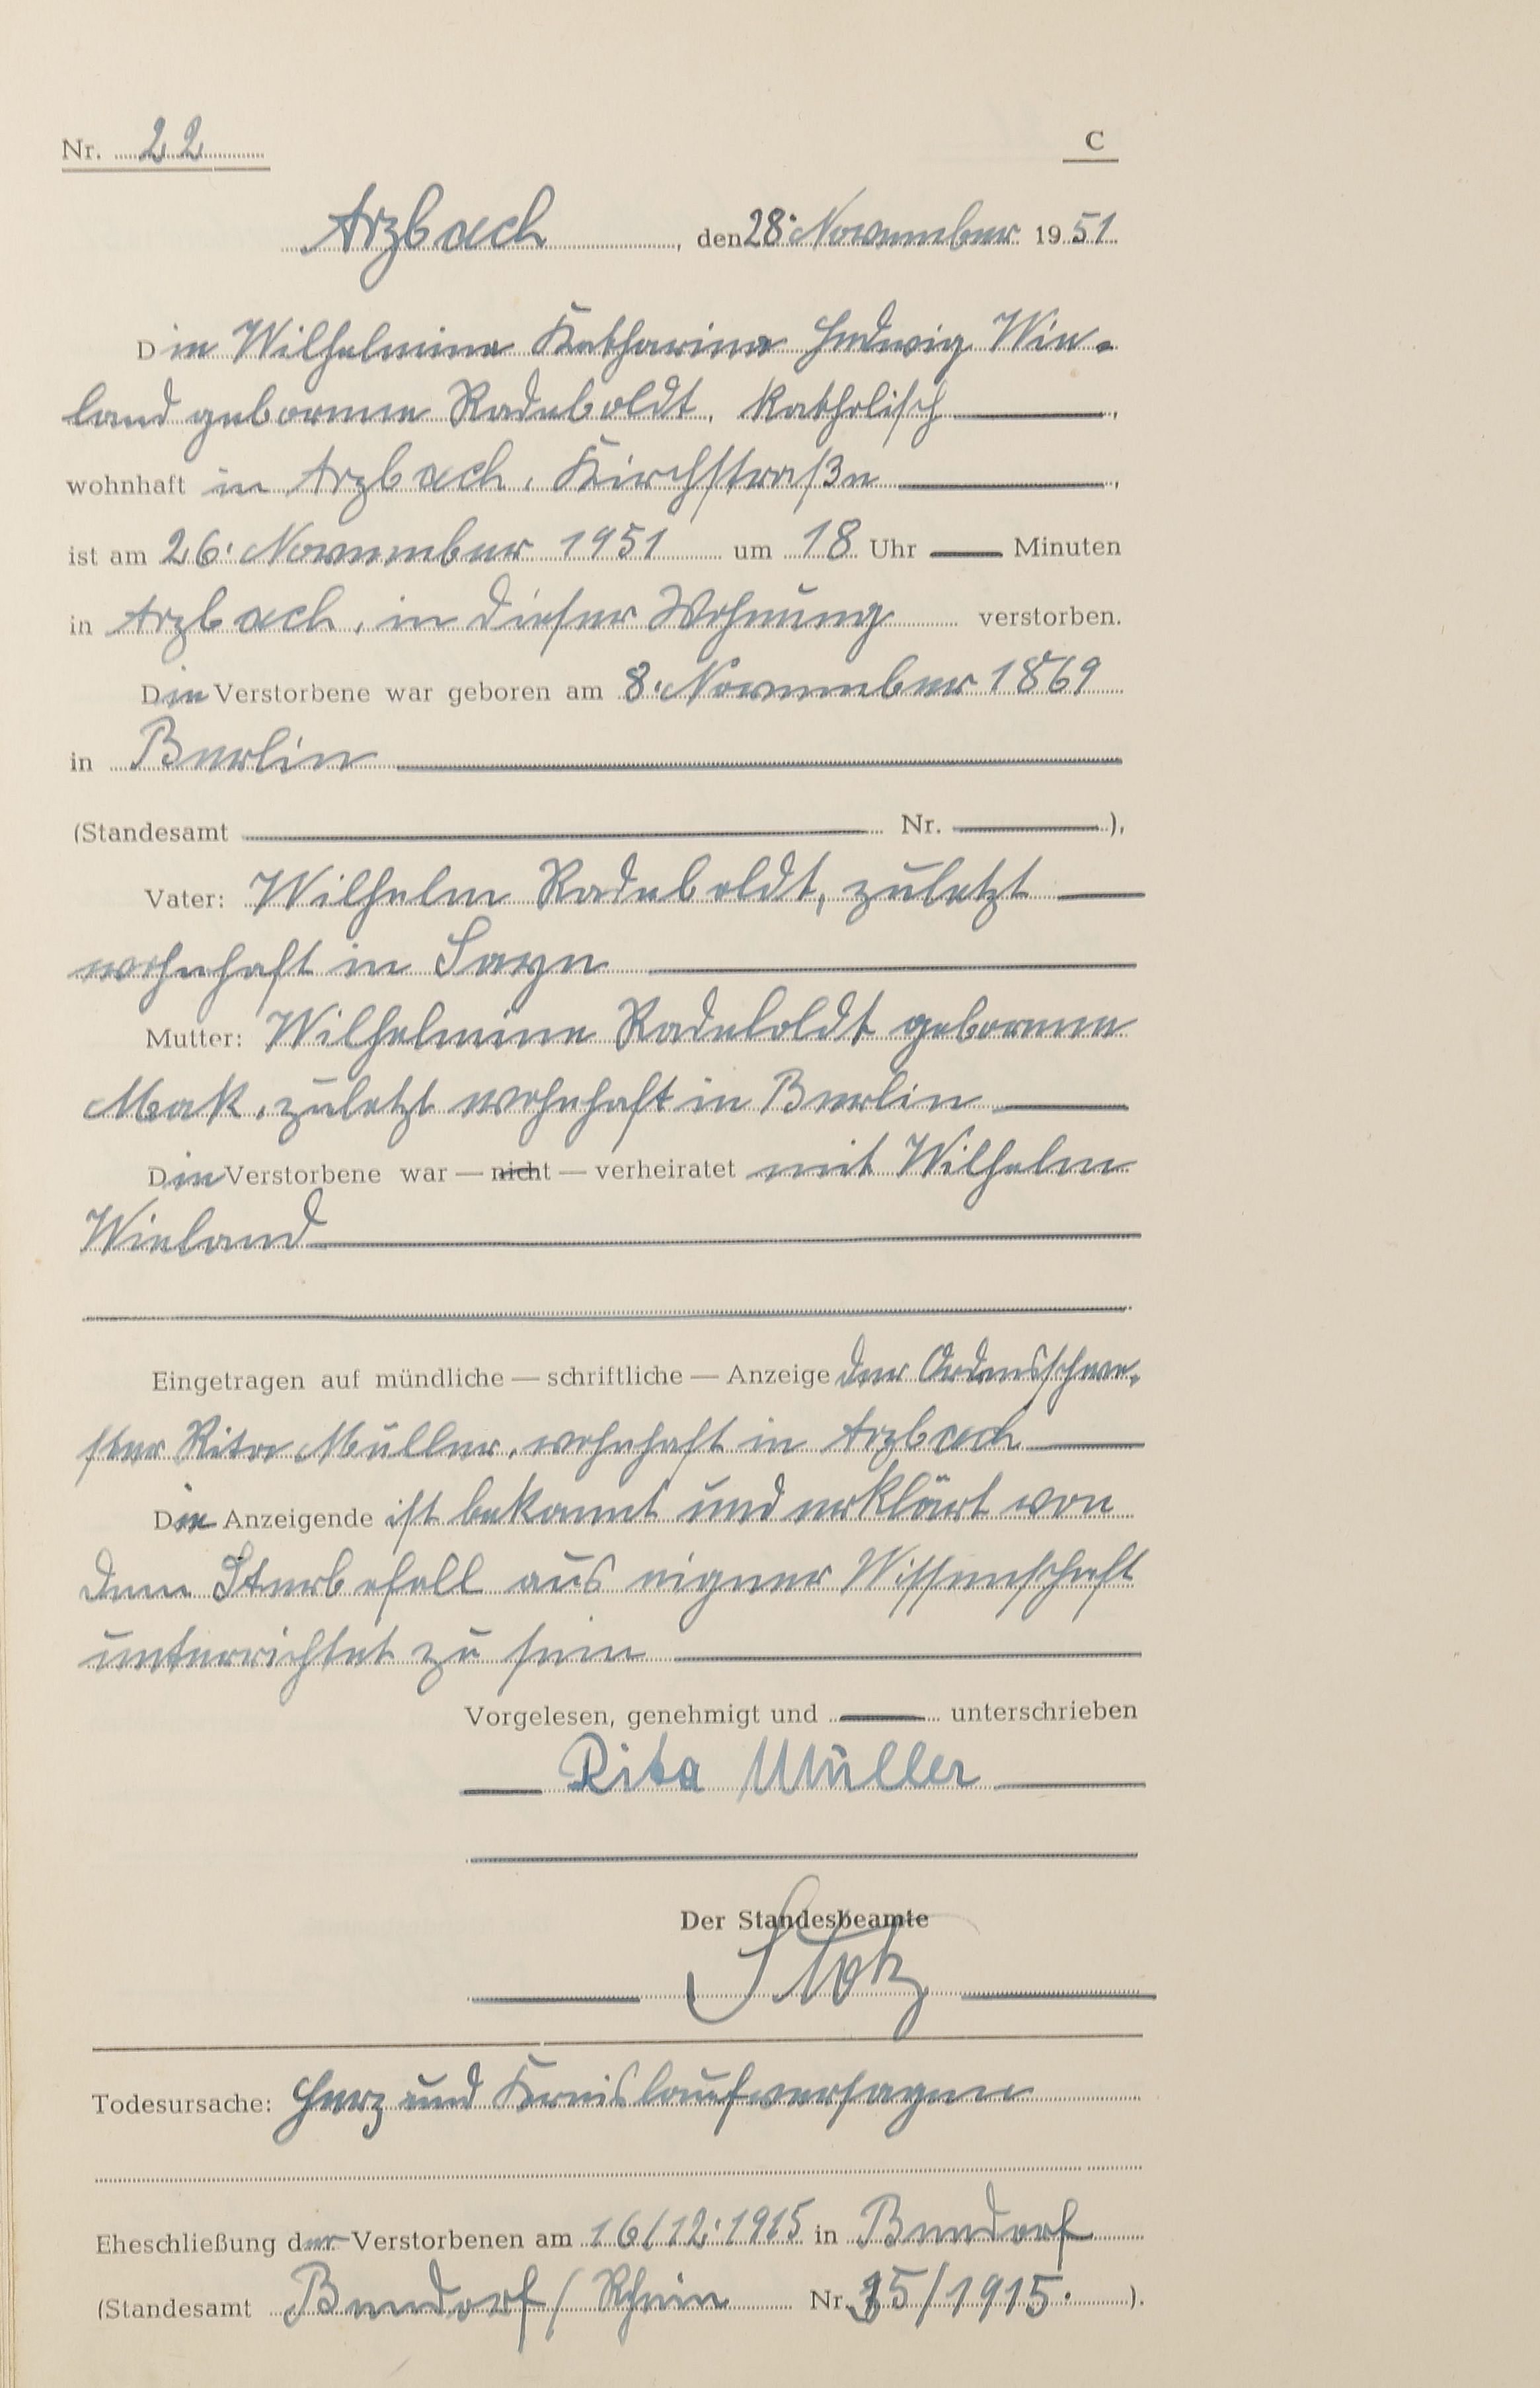 Nr. 22
C
Arzbach, den 28. November 1951
Die Wilhelmine Katharina Hedwig Wie-
land geborene Radeboldt, katholisch,
wohnhaft in Arzbach, Kirchstraße,
ist am 26. November 1951 um 18 Uhr — Minuten
in Arzbach, in dieser Wohnung verstorben.
Die Verstorbene war geboren am 8. November 1869
in Berlin
(Standesamt — Nr. —),
Vater: Wilhelm Radeboldt, zuletzt
wohnhaft in Sayn
Mutter: Wilhelmine Radeboldt geborene
Mak, zuletzt wohnhaft in Berlin
Die Verstorbene war — nicht — verheiratet mit Wilhelm
Wieland
Eingetragen auf mündliche — schriftliche — Anzeige der Ordensschwe-
ster Rita Müller, wohnhaft in Arzbach
Die Anzeigende ist bekannt und erklärt von
dem Sterbefall aus eigener Wissenschaft
unterrichtet zu sein
Vorgelesen, genehmigt und — unterschrieben
Rita Müller
Der Standesbeamte
Stotz
Todesursache: Herz und Kreislaufversagen
Eheschließung der Verstorbenen am 16/12.1915 in Bendorf
(Standesamt Bendorf/Rhein Nr. 35/1915.).